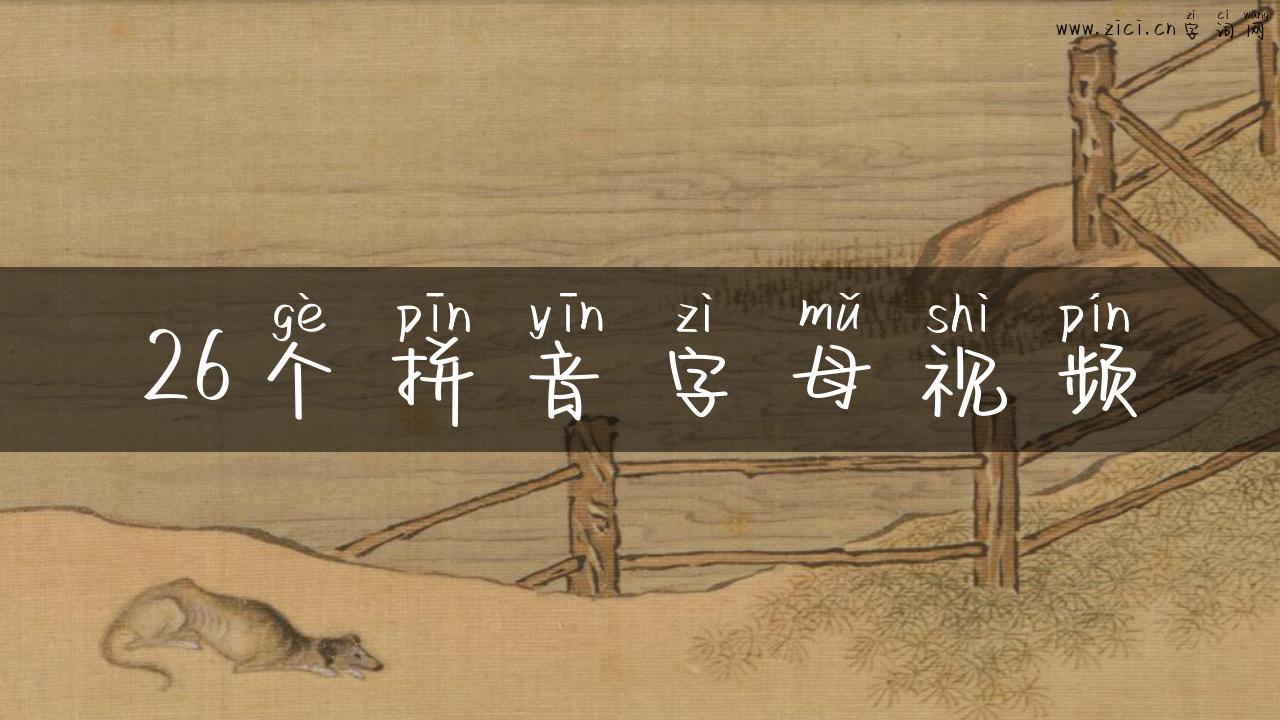 zì cí wǎng
www.zici.cn 字词网
gè pīn yīn zì mǔ shì pín
26个拼音字母视频